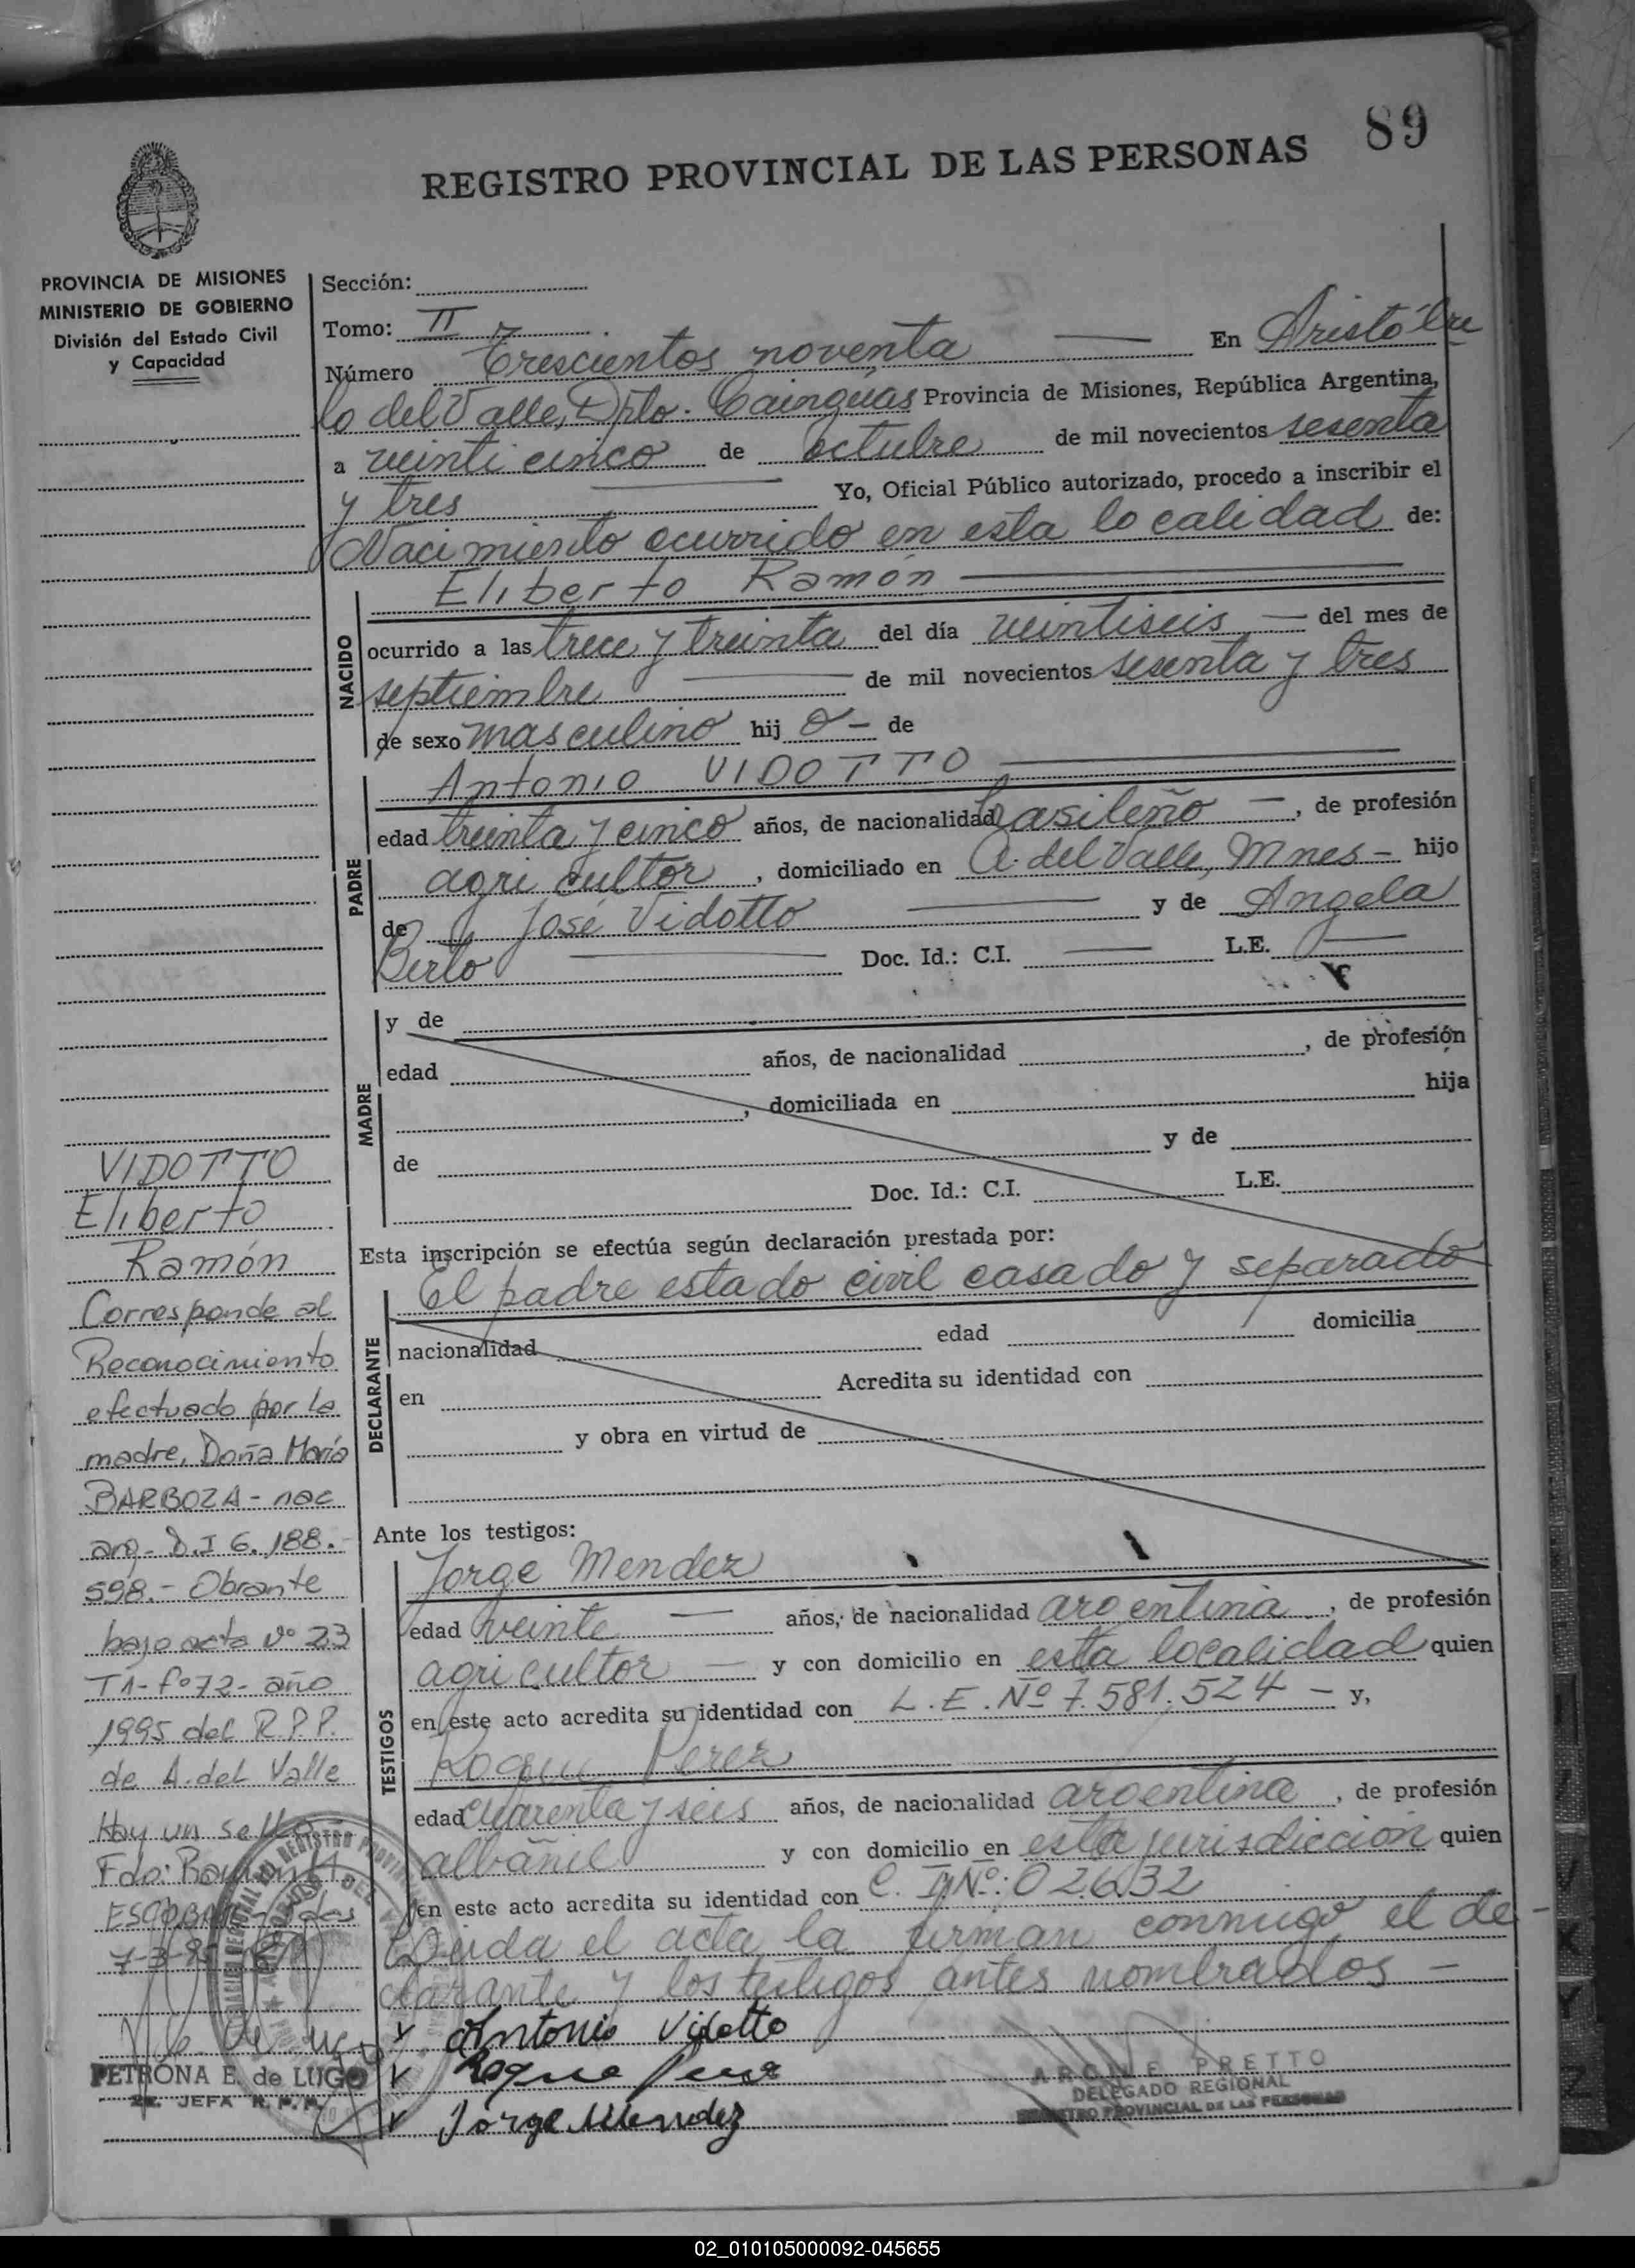 89
REGISTRO PROVINCIAL DE LAS PERSONAS
PROVINCIA DE MISIONES
MINISTERIO DE GOBIERNO
División del Estado Civil
y Capacidad
Sección:
Tomo: II
Número Trescientos noventa En Aristóbu
lo del Valle, Dpto. Cainguás Provincia de Misiones, República Argentina,
a veinticinco de octubre de mil novecientos sesenta
y tres Yo, Oficial Público autorizado, procedo a inscribir el
Nacimiento ocurrido en esta localidad de:
NACIDO
Eliberto Ramón
ocurrido a las trece y treinta del día veintiseis del mes de
septiembre de mil novecientos sesenta y tres
de sexo masculino hij o - de
PADRE
Antonio VIDOTTO
edad treinta y cinco años, de nacionalidad brasileño, de profesión
agricultor, domiciliado en A. del Valle, Mnes - hijo
de José Vidotto y de Angela
Berto Doc. Id.: C.I. L.E.
MADRE
y de
edad años, de nacionalidad , de profesión
, domiciliada en hija
de y de
Doc. Id.: C.I. L.E.
Esta inscripción se efectúa según declaración prestada por:
El padre estado civil casado y separado
DECLARANTE
nacionalidad edad domicilia
en Acredita su identidad con
y obra en virtud de
Ante los testigos:
TESTIGOS
Jorge Mendez
edad veinte años, de nacionalidad argentina, de profesión
agricultor y con domicilio en esta localidad quien
en este acto acredita su identidad con L.E. Nº 7.581.524 - y,
Roque Perez
edad cuarenta y seis años, de nacionalidad argentina, de profesión
albañil y con domicilio en esta jurisdicción quien
en este acto acredita su identidad con C. I Nº: 02632
Leida el acta la firman conmigo el de-
clarante y los testigos antes nombrados -
Antonio Vidotto
Roque Perez
Jorge Mendez
PRETTO
DELEGADO REGIONAL
REGISTRO PROVINCIAL DE LAS PERSONAS
VIDOTTO
Eliberto
Ramón
Corresponde al
Reconocimiento
efectuado por la
madre, Doña María
BARBOZA - nac
arg - D.I 6.188.-
598.- Obrante
bajo acta Nº 23
T1 - Fº 72 - año
1995 del R.P.P.
de A. del Valle
Hay un sello
Fdo:
7-3-95
PETRONA E. de LUGO
JEFA R.P.P.
02_010105000092-045655